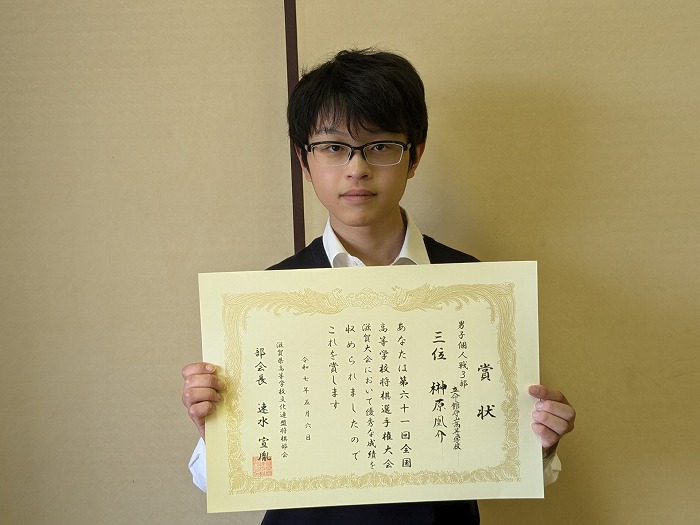 賞状
男子個人戦3部
立命館守山高等学校
三位 榊原凰介
あなたは第六十一回全国
高等学校将棋選手権大会
滋賀大会において優秀な成績を
収められましたので
これを賞します
令和七年五月六日
滋賀県高等学校文化連盟将棋部会
部会長 速水宣胤